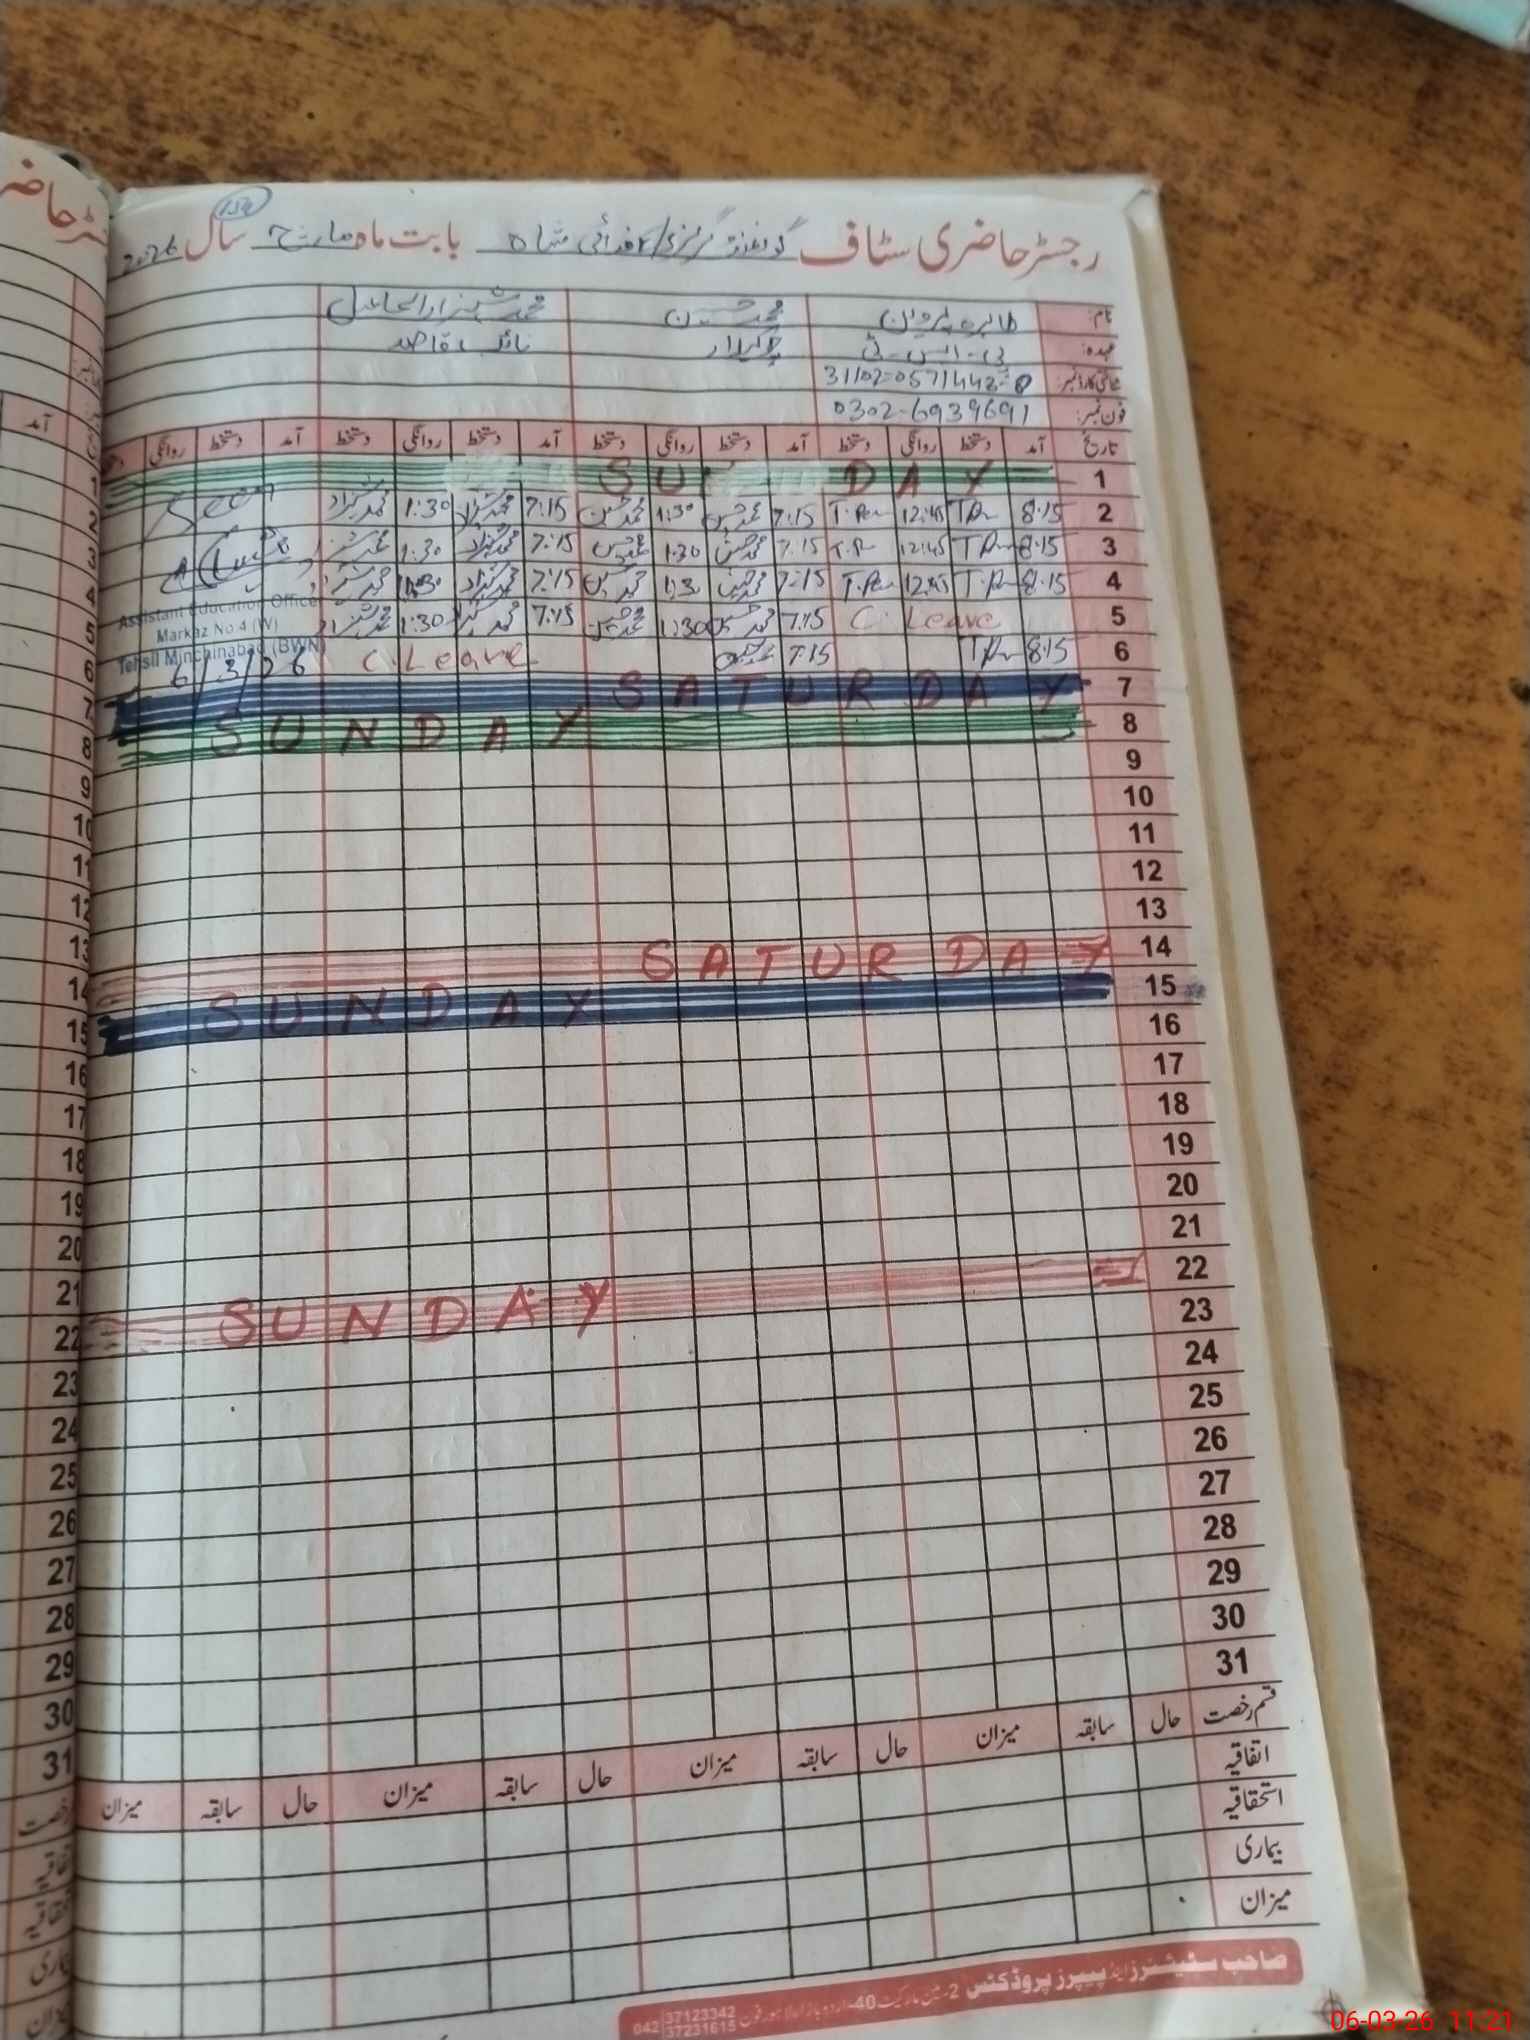 154
رجسٹر حاضری سٹاف گورنمنٹ گرلز بابت ماہ مارچ سال 2026
نام: طاہرہ پروین محمد حسین محمد شہزاد
عہدہ: پی-ایس-ٹی چوکیدار نائب قاصد
شناختی کارڈ نمبر:
فون نمبر: 0302-6939691
تاریخ آمد دستخط روانگی دستخط آمد دستخط روانگی دستخط آمد دستخط روانگی دستخط آمد دستخط روانگی
1 SU DAY
2 8:15 12:45 7:15 محمد حسین 1:30 محمد حسین 7:15 محمد شہزاد 1:30 محمد شہزاد Seen
3 8:15 12:45 7:15 محمد حسین 1:30 محمد حسین 7:15 محمد شہزاد 1:30 محمد شہزاد
4 8:15 12:45 7:15 محمد حسین 1:30 محمد حسین 7:15 محمد شہزاد 1:30 محمد شہزاد
5 C. Leave 7:15 محمد حسین 1:30 محمد حسین 7:15 محمد شہزاد 1:30 محمد شہزاد
6 8:15 7:15 محمد حسین C. Leave
Assistant Education Officer
Markaz No 4 (W)
Tehsil Minchinabad (BWN)
6/3/26
7 SATURDAY
8 SUNDAY
9
10
11
12
13
14 SATURDAY
15 SUNDAY
16
17
18
19
20
21
22 SUNDAY
23
24
25
26
27
28
29
30
31
قسم رخصت حال سابقہ میزان حال سابقہ میزان حال سابقہ میزان حال سابقہ میزان
اتفاقیہ
استحقاقیہ
بیماری
میزان
صاحب سٹیشنرز اینڈ پیپرز پروڈکٹس 2-مین مارکیٹ 40-اردو بازار لاہور فون 042 37123342 37231615
06-03-26 11:21